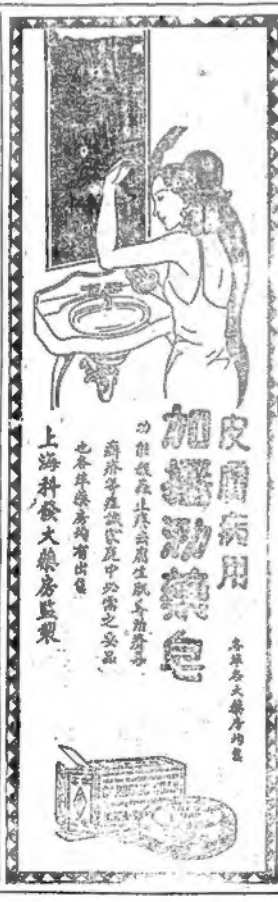 皮膚病用
加波力藥皂
各埠各大藥房均售
功能殺菌止癢去腐生肌專治疥
癬等症誠家庭中必需之妙品
也各埠藥房均有出售
上海科發大藥房監製